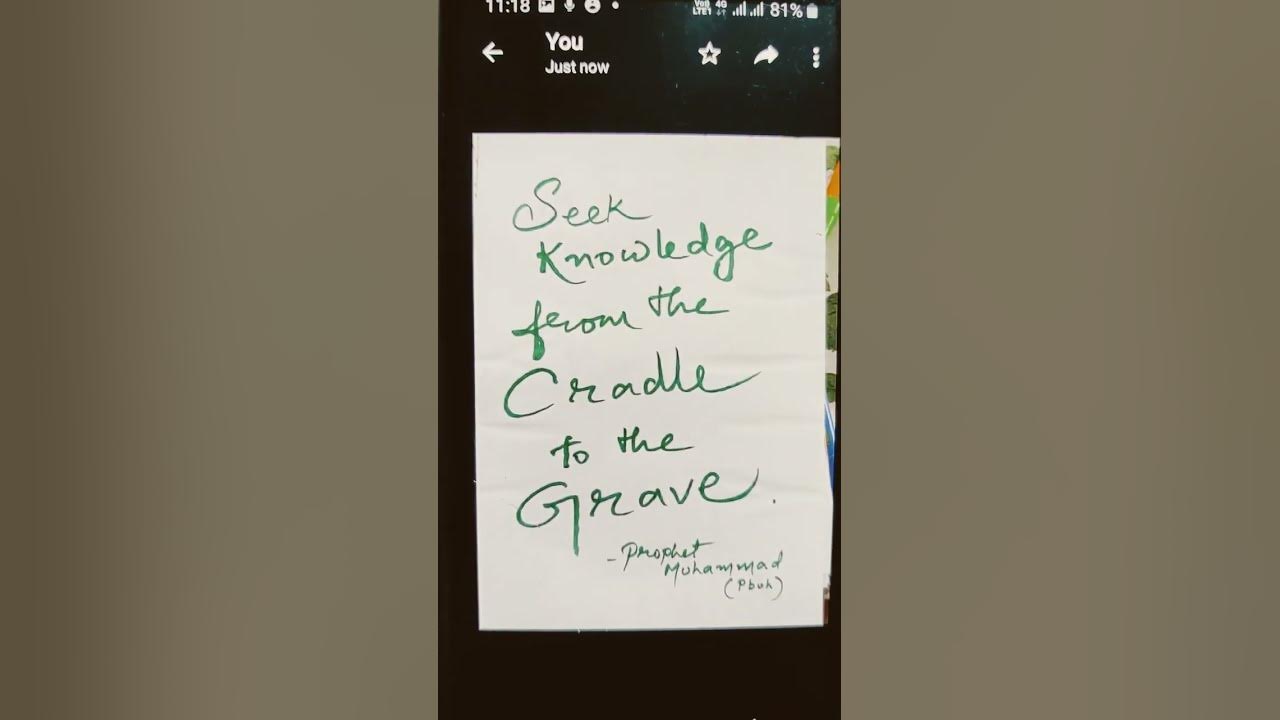 11:18 81%
You
Just now
Seek
Knowledge
from the
Cradle
to the
Grave.
- Prophet
Muhammad
(Pbuh)